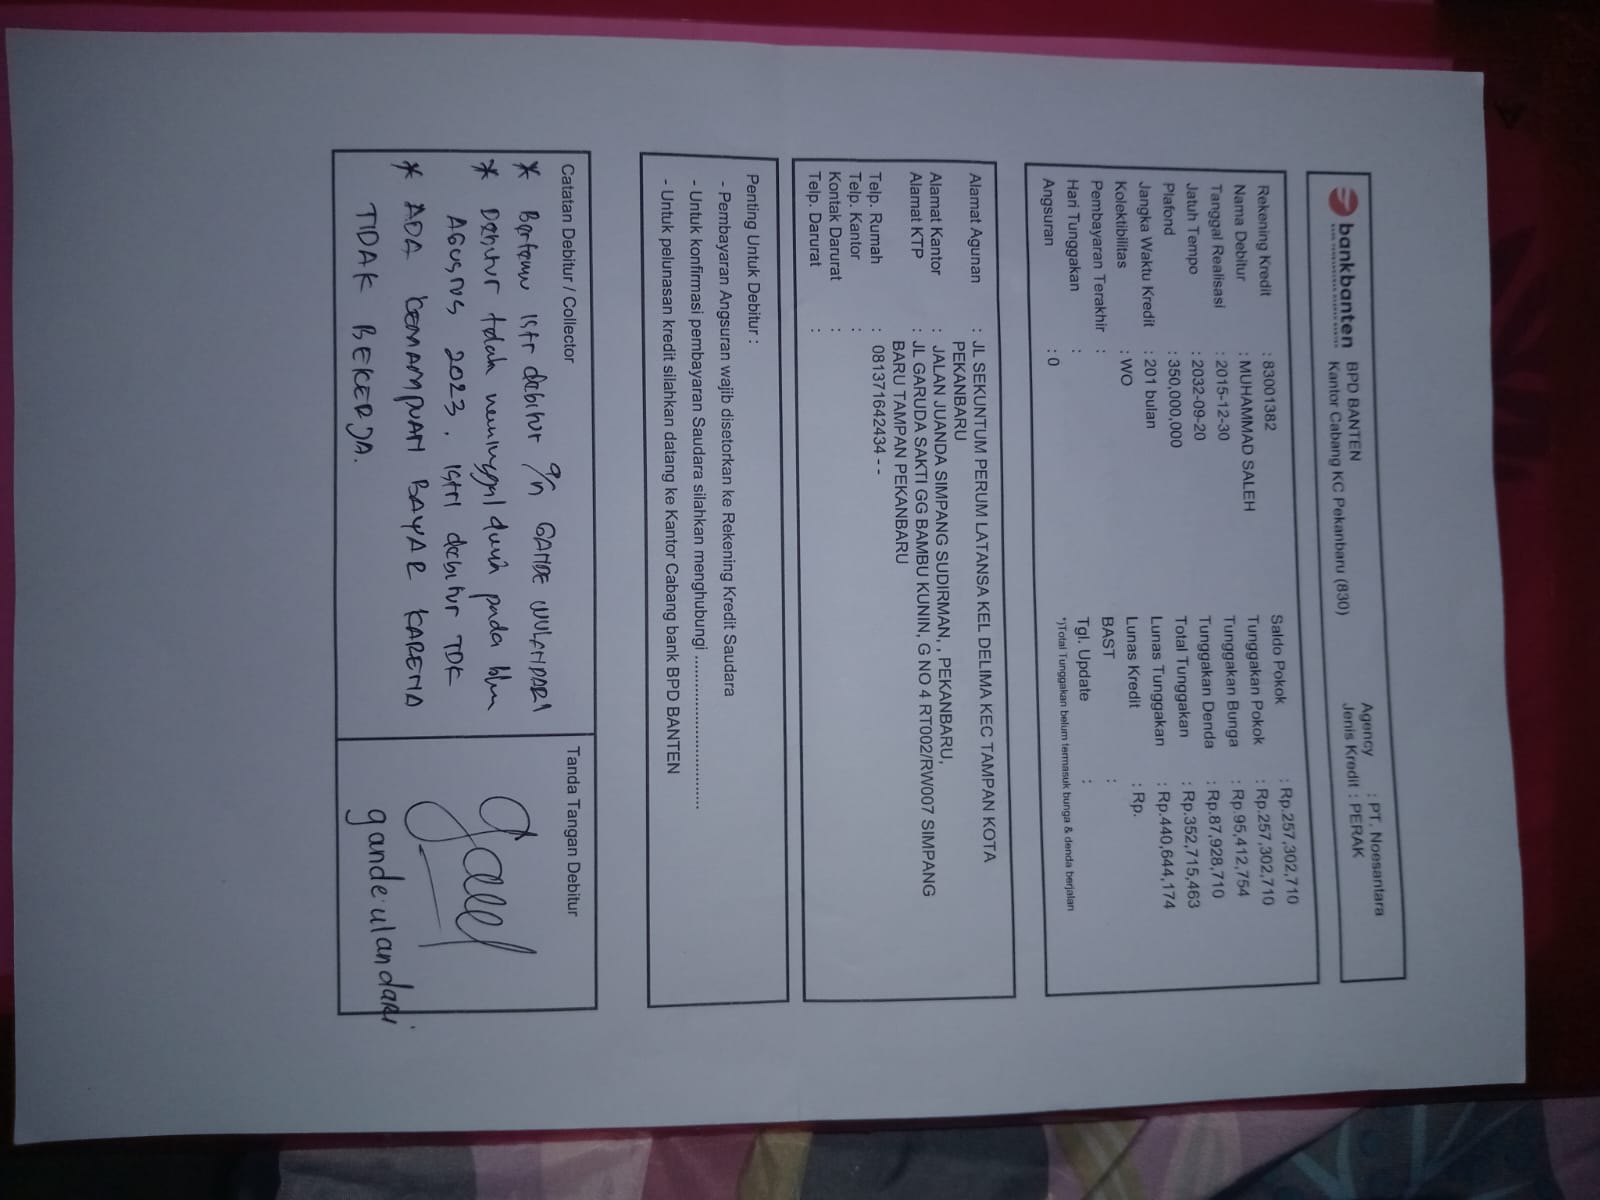 bankbanten
BPD BANTEN
Kantor Cabang KC Pekanbaru (830)
Agency : PT. Noesantara
Jenis Kredit : PERAK
Rekening Kredit : 83001382
Nama Debitur : MUHAMMAD SALEH
Tanggal Realisasi : 2015-12-30
Jatuh Tempo : 2032-09-20
Plafond : 350,000,000
Jangka Waktu Kredit : 201 bulan
Kolektibilitas : WO
Pembayaran Terakhir :
Hari Tunggakan :
Angsuran : 0
Saldo Pokok : Rp.257,302,710
Tunggakan Pokok : Rp.257,302,710
Tunggakan Bunga : Rp.95,412,754
Tunggakan Denda : Rp.87,928,710
Total Tunggakan : Rp.352,715,463
Lunas Tunggakan : Rp.440,644,174
Lunas Kredit : Rp.
BAST :
Tgl. Update :
*)Total Tunggakan belum termasuk bunga & denda berjalan
Alamat Agunan : JL SEKUNTUM PERUM LATANSA KEL DELIMA KEC TAMPAN KOTA
PEKANBARU
Alamat Kantor : JALAN JUANDA SIMPANG SUDIRMAN, , PEKANBARU,
Alamat KTP : JL GARUDA SAKTI GG BAMBU KUNIN, G NO 4 RT002/RW007 SIMPANG
BARU TAMPAN PEKANBARU
Telp. Rumah : 081371642434 - -
Telp. Kantor :
Kontak Darurat :
Telp. Darurat :
Penting Untuk Debitur :
- Pembayaran Angsuran wajib disetorkan ke Rekening Kredit Saudara
- Untuk konfirmasi pembayaran Saudara silahkan menghubungi ....................................
- Untuk pelunasan kredit silahkan datang ke Kantor Cabang bank BPD BANTEN
Catatan Debitur / Collector
* Bertemu istr debitur a/n GANDE WULANDARI
* Debitur telah meninggal dunia pada bln
Agustus 2023. istri debitur TDK
* ADA KEMAMPUAN BAYAR KARENA
TIDAK BEKERJA.
Tanda Tangan Debitur
gande ulandari